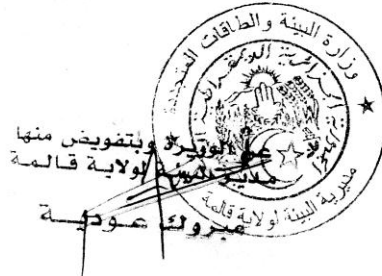 وزارة البيئة والطاقات المتجددة
الجمهورية الجزائرية الديمقراطية
مديرية البيئة لولاية قالمة
عن الوزيرة وبتفويض منها
مديرة البيئة لولاية قالمة
مبروك عودية